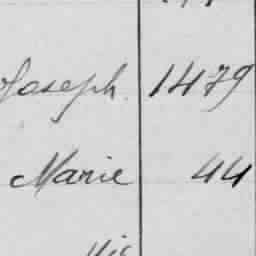 Joseph 1479
Marie 44